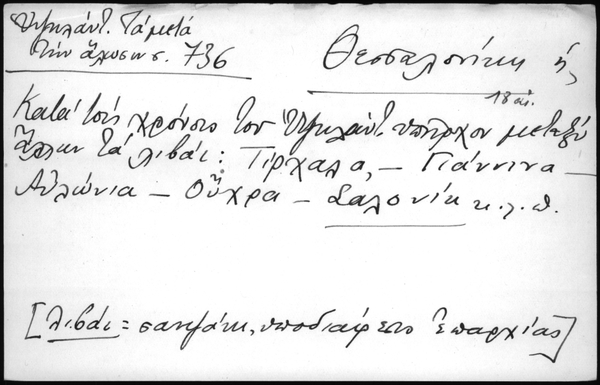 Ὑψηλάντ. Τὰ μετὰ
τὴν ἅλωσιν σ. 736
Θεσσαλονίκη ἡ
18 αἰ.
Κατὰ τοὺς χρόνους τοῦ Ὑψηλάντ. ὑπῆρχον μεταξὺ
ἄλλων τὰ λιβάι: Τίρχαλα, – Γιάννινα –
Αὐλώνια – Οὔχρα – Σαλονίκ κ.λ.π.
[λιβάι = σαντζάκι, ὑποδιαίρεσις Ἐπαρχίας]